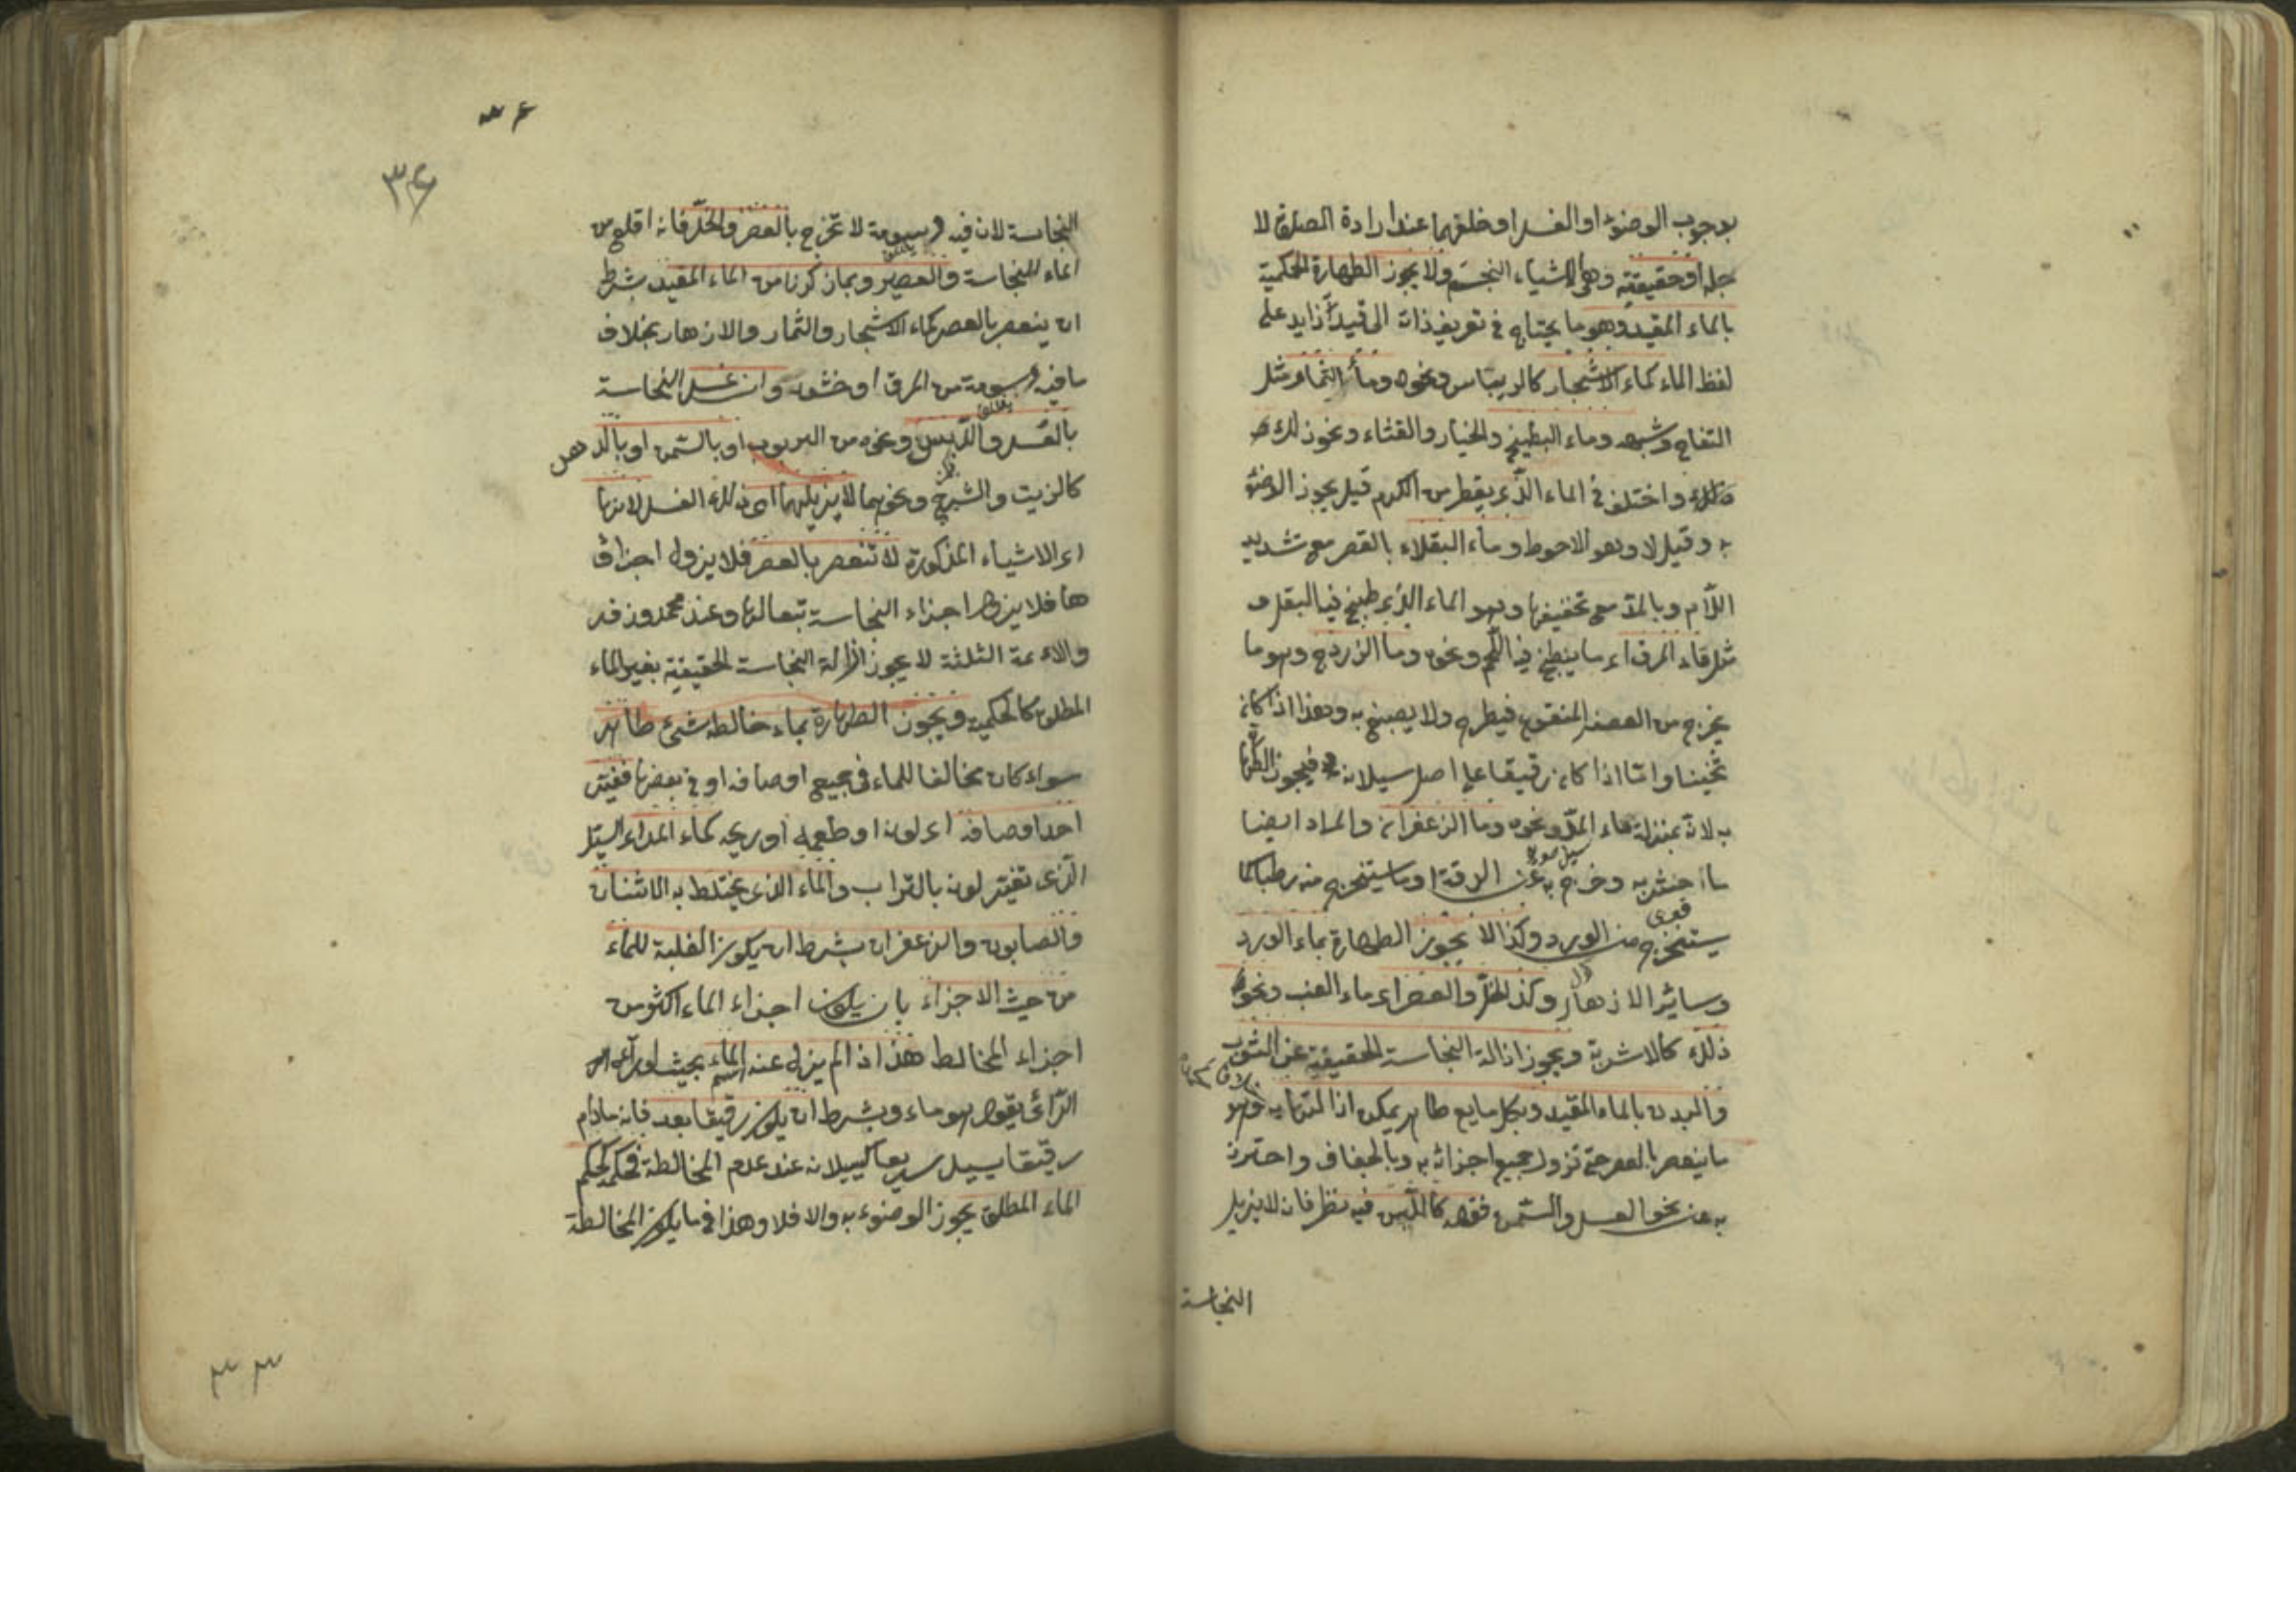 بوجوب الوضوء او الغسل او خلفهما عند ارادة الصلوة لا
جله او حقيقية وهى الاشياء النجسة ولا يجوز الطهارة الحكمية
بالماء المقيد وهو ما يحتاج فى تعريف ذاته الى قيد زايد على
لفظ الماء كماء الاشجار كالريباس ونحوه وماء الثمار مثل
التفاح وشبهه وماء البطيخ والخيار والقثاء ونحو ذلك
واختلف فى الماء الذى يقطر من الكرم قيل يجوز الوضوء
به وقيل لا وهو الاحوط وماء البقلاء بالقصر مع تشديد
اللام وبالمد مع تخفيفها وهو الماء الذى طبخ فيه البقل و
المرق اى ما ينطبخ فيه اللحم ونحوه وما الزردج وهو ما
يخرج من العصفر المنقوع فيطرح ولا يصبغ به وهذا اذا كان
ثخينا واما اذا كان رقيقا على اصل سيلانه فيجوز الطها
به لانه بمنزلة ماء المد ونحوه وما الزعفران والمراد ايضا
ما خثر به وخرج به عن الرقة او ما يستخرج منه رطبا كما
يستخرج من الورد وكذا لا يجوز الطهارة بماء الورد
وسائر الازهار وكذا الخل والعصير اى ماء العنب ونحو
ذلك كالاشربة ويجوز ازالة النجاسة الحقيقية عن الثوب
والبدن بالماء المقيد وبكل مايع طاهر يمكن ازالتها به وهو
ما ينعصر بالعصر حتى تزول جميع اجزائه به وبالجفاف واحترز
به عن نحو العسل والسمن فقوله كاللبن فيه نظر فانه لا يزيل
النجاسة
٣٦
النجاسة لان فيه دسومة لا تخرج بالعصر والخل فانه اقلع من
الماء للنجاسة والعصير وبما ذكرنا من الماء المقيد بشرط
ان ينعصر بالعصر كماء الاشجار والثمار والازهار بخلاف
ما فيه دسومة من المرق او خثورة وان غسل النجاسة
بالعسل والدبس ونحوه من الربوب او بالسمن او بالدهن
كالزيت والشيرج ونحوهما لا يزيلها اى ذلك الغسل لانها
اى الاشياء المذكورة لا تنعصر بالعصر فلا يزول اجزاؤ
ها فلا يزول اجزاء النجاسة تبعا لها وعند محمد وزفر
والائمة الثلثة لا يجوز ازالة النجاسة الحقيقية بغير الماء
المطلق كالحكمية ويجوز الطهارة بماء خالطه شئ طاهر
سواء كان مخالفا للماء فى جميع اوصافه او فى بعضها فغير
احد اوصافه اى لونه او طعمه او ريحه كماء المد اى السيل
الذى تغير لونه بالتراب والماء الذى يختلط به الاشنان
والصابون والزعفران بشرط ان يكون الغلبة للماء
من حيث الاجزاء بان يكون اجزاء الماء اكثر من
اجزاء المخالط هذا اذا لم يزل عنه اسم الماء بحيث لو رآه
الرائى يقول هو ماء وبشرط ان يكون رقيقا بعد فانه مادام
رقيقا يسيل سريعا كسيلانه عند عدم المخالطة فحكمه حكم
الماء المطلق يجوز الوضوء به والا فلا وهذا فيما يكون المخالطة
٣٣